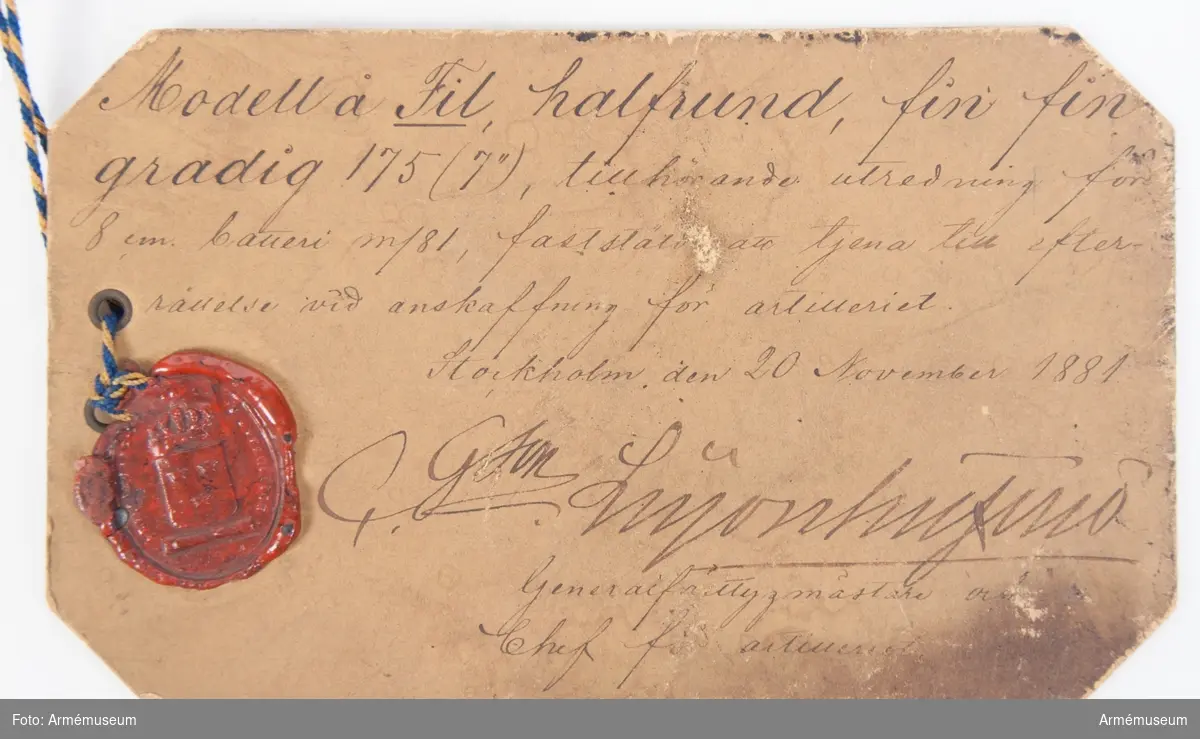 Modell å Fil, halfrund, fin fin
gradig 175 (7"), tillhörande utredning för
8 cm. batteri m/81, fastställd att tjena till efter-
rättelse vid anskaffning för artilleriet.
Stockholm den 20 November 1881
C. Gson Leijonhufvud
Generalfälttygmästare och
Chef för artilleriet
Foto: Armémuseum
Armémuseum